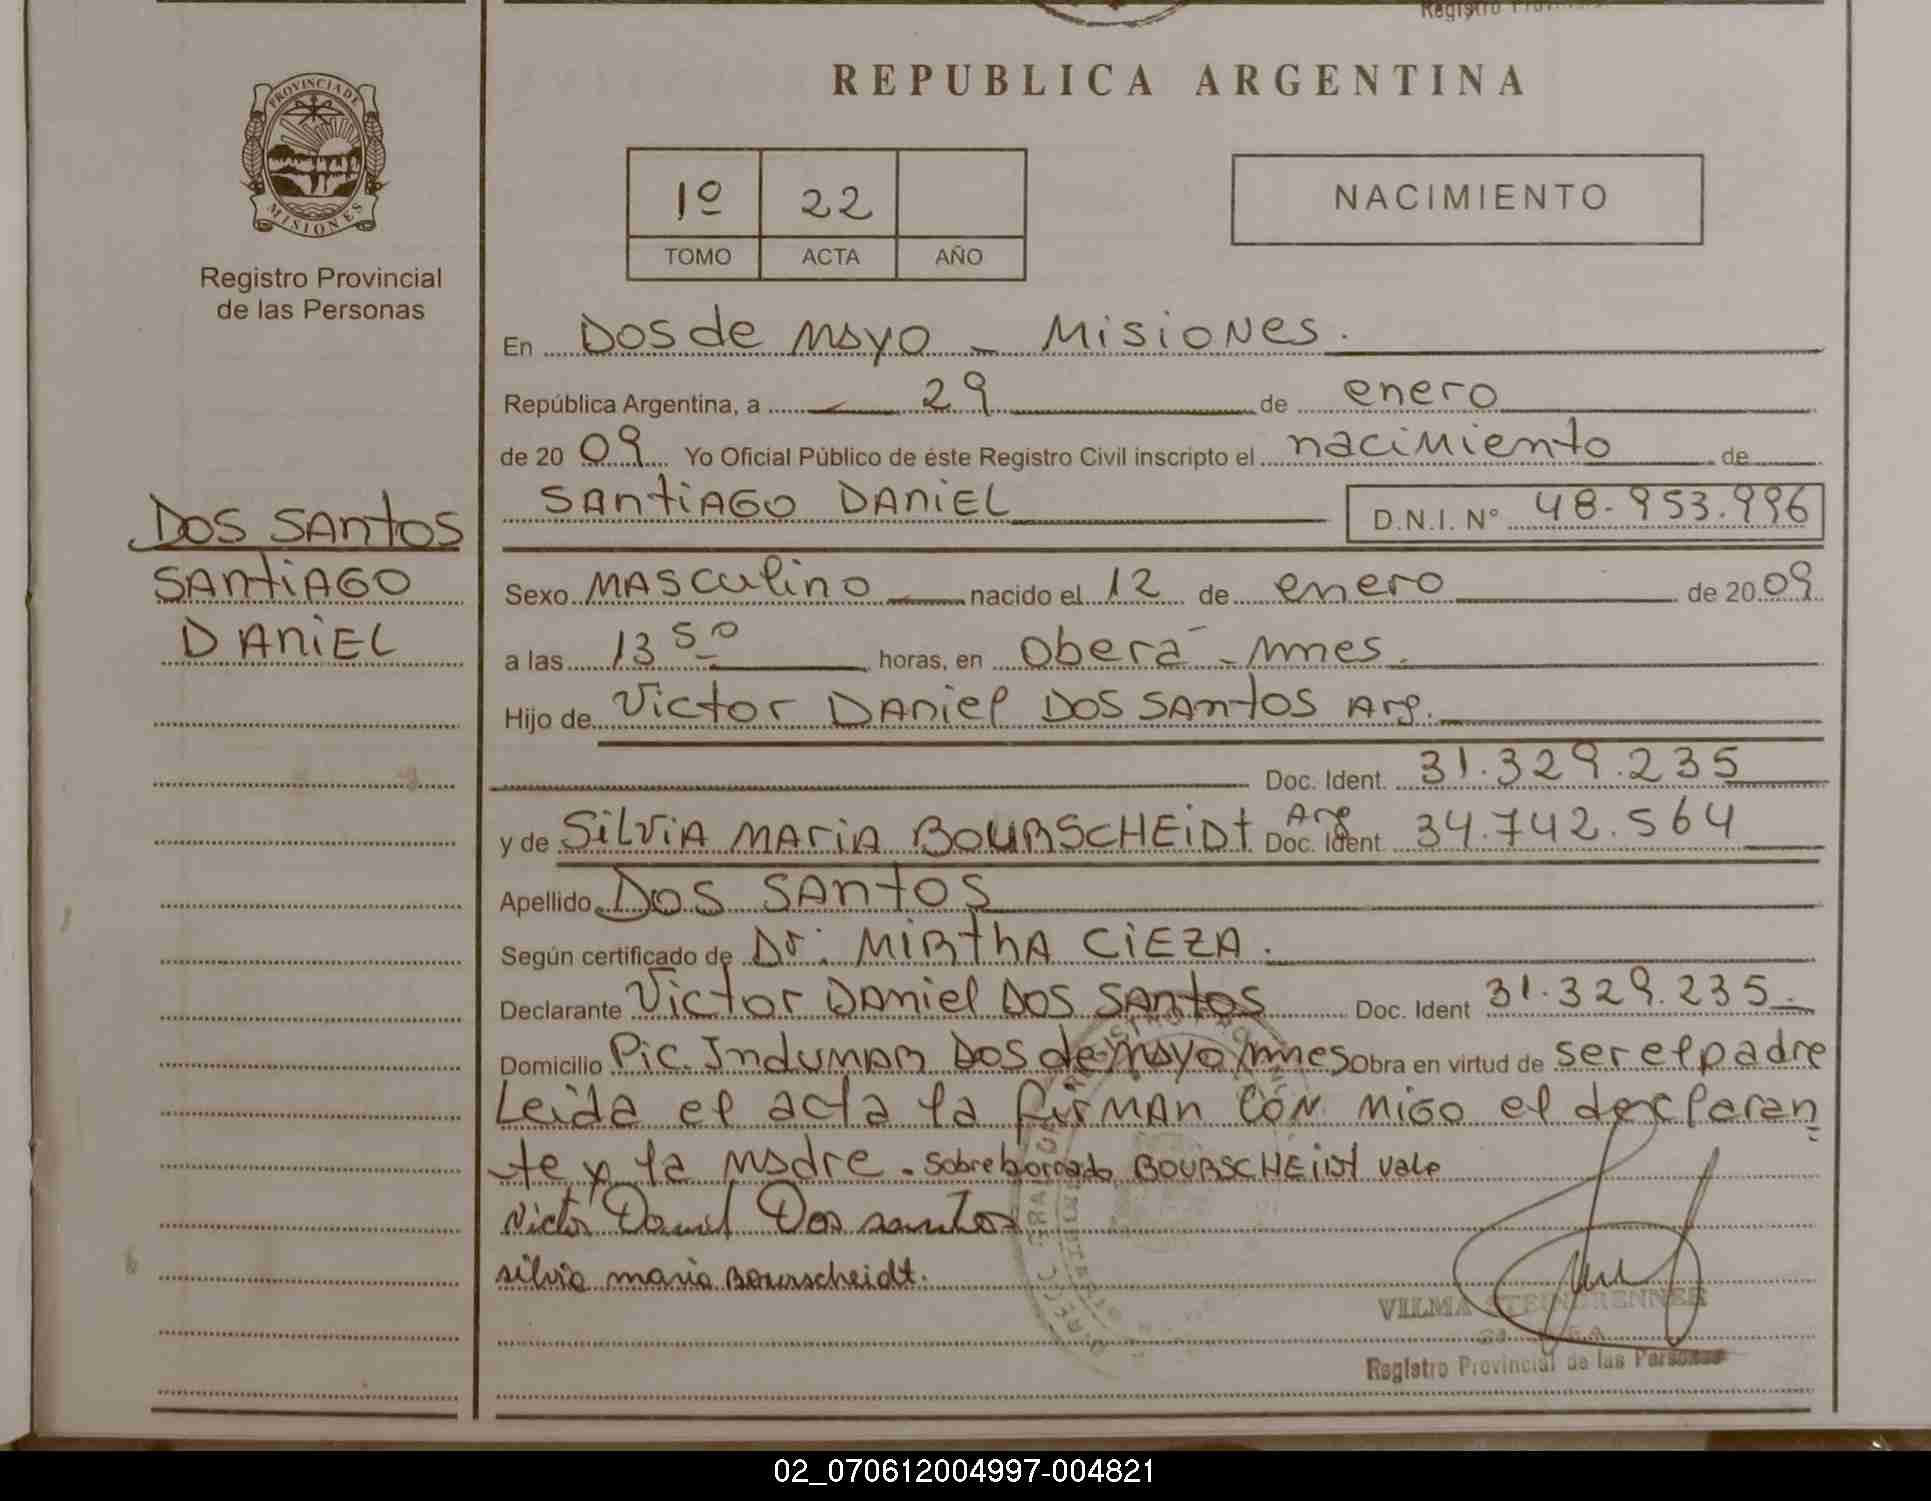 Registro
PROVINCIA DE
MISIONES
Registro Provincial
de las Personas
DOS SANTOS
SANTIAGO
DANIEL
REPUBLICA ARGENTINA
1º 22
TOMO ACTA AÑO
NACIMIENTO
En Dos de Mayo - Misiones.
República Argentina, a 29 de enero
de 2009 Yo Oficial Público de éste Registro Civil inscripto el nacimiento de
SANTIAGO DANIEL D.N.I. N° 48.953.996
Sexo MASculino nacido el 12 de enero de 2009
a las 13 50 horas, en Oberá - Mnes.
Hijo de Victor DANiel DOS SANTOS Arg.
Doc. Ident. 31.329.235
y de SILVIA MARIA BOURSCHEIDT Arg Doc. Ident 34.742.564
Apellido DOS SANTOS
Según certificado de Dr. MIRTHA CIEZA.
Declarante Victor Daniel Dos Santos Doc. Ident 31.329.235.
Domicilio Pic. Indumar Dos de Mayo Mnes Obra en virtud de ser el padre
Leida el acta la firman con migo el declaran
te y la madre. Sobreborrado BOURSCHEIDT Vale
Victor Daniel Dos santos
silvia maria Bourscheidt.
VILMA STEINBRENNER
Registro Provincial de las Personas
02_070612004997-004821